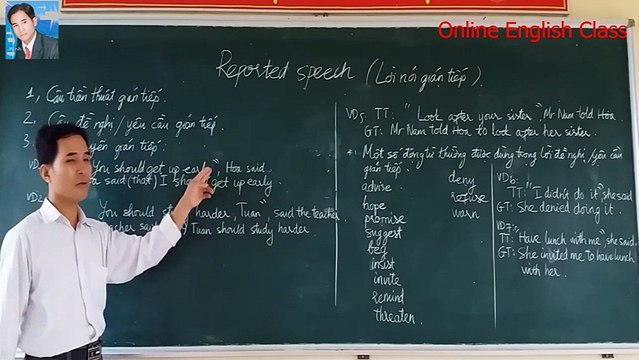 Online English Class
Reported speech (Lời nói gián tiếp).
1, Câu trần thuật gián tiếp.
2. Câu đề nghị/yêu cầu gián tiếp.
3. yên gián tiếp.
VD You should get up early", Hoa said.
a said (that) I should get up early.
VD2 You should study harder, Tuan", said the teacher
acher said Tuan should study harder
VD5: TT: "Look after your sister", Mr Nam told Hoa.
GT: Mr Nam told Hoa to look after her sister.
Một số động từ thường được dùng trong lời đề nghị/yêu cầu
gián tiếp.
advise
hope
promise
suggest
beg
insist
invite
remind
threaten.
deny
refuse
warn
VD6:
TT: "I didn't do it", she said
GT: She denied doing it.
VD7:
TT: "Have lunch with me", she said.
GT: She invited me to have lunch
with her.